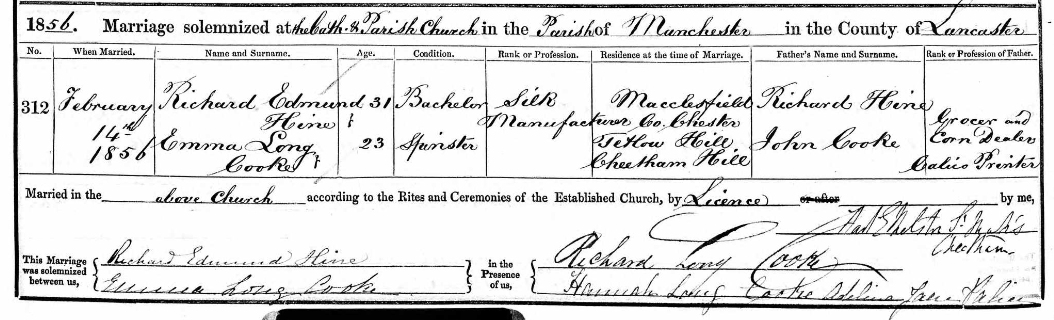 1856. Marriage solemnized at the Cath. & Parish Church in the Parish of Manchester in the County of Lancaster
No. When Married. Name and Surname. Age. Condition. Rank or Profession. Residence at the time of Marriage. Father's Name and Surname. Rank or Profession of Father.
312 February 14th 1856
Richard Edmund Hine 31 Bachelor Silk Manufacturer Macclesfield Co. Chester Richard Hine Grocer and Corn Dealer
Emma Long Cooke 23 Spinster Tetlow Hill Cheetham Hill John Cooke Calico Printer
Married in the above Church according to the Rites and Ceremonies of the Established Church, by Licence or after by me,
Cheetham
This Marriage was solemnized between us, Richard Edmund Hine
Emma Long Cooke
in the Presence of us, Richard Long Cooke
Hannah Long Cooke Adelina Jane